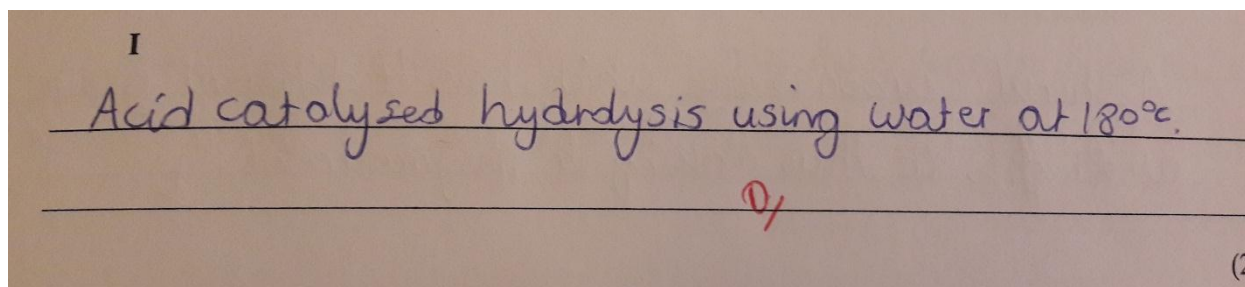 I
Acid catalysed hydrolysis using water at 180°c.
0/
(2